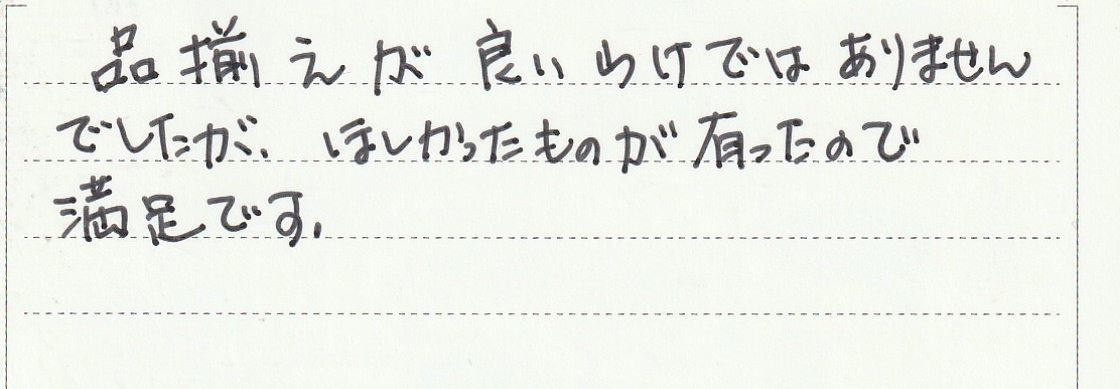 品揃えが良いわけではありません
でしたが、ほしかったものが有ったので
満足です。